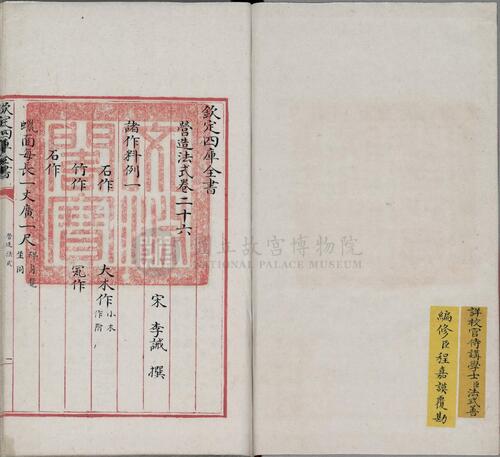 詳校官侍講學士臣法式善
編修臣程嘉謨覆勘
欽定四庫全書
營造法式卷二十六
宋 李誡 撰
諸作料例一
石作 大木作小木作附
竹作 瓦作
石作
蠟面每長一丈廣一尺
欽定四庫全書
營造法式
國立故宮博物院
NATIONAL PALACE MUSEUM